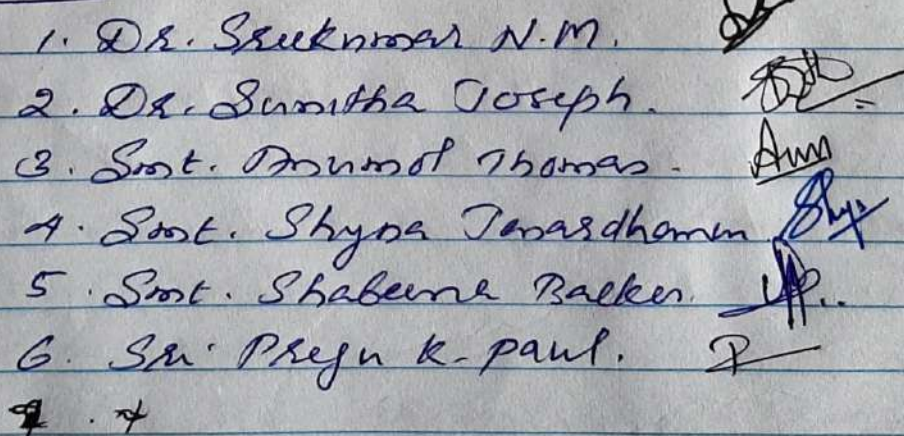 1. Dr. Sreekumar N.M.
2. Dr. Sunitha Joseph.
3. Smt. Anumol Thomas.
4. Smt. Shyna Janardhanan
5. Smt. Shabeena Backer.
6. Sri. Preju K. Paul.